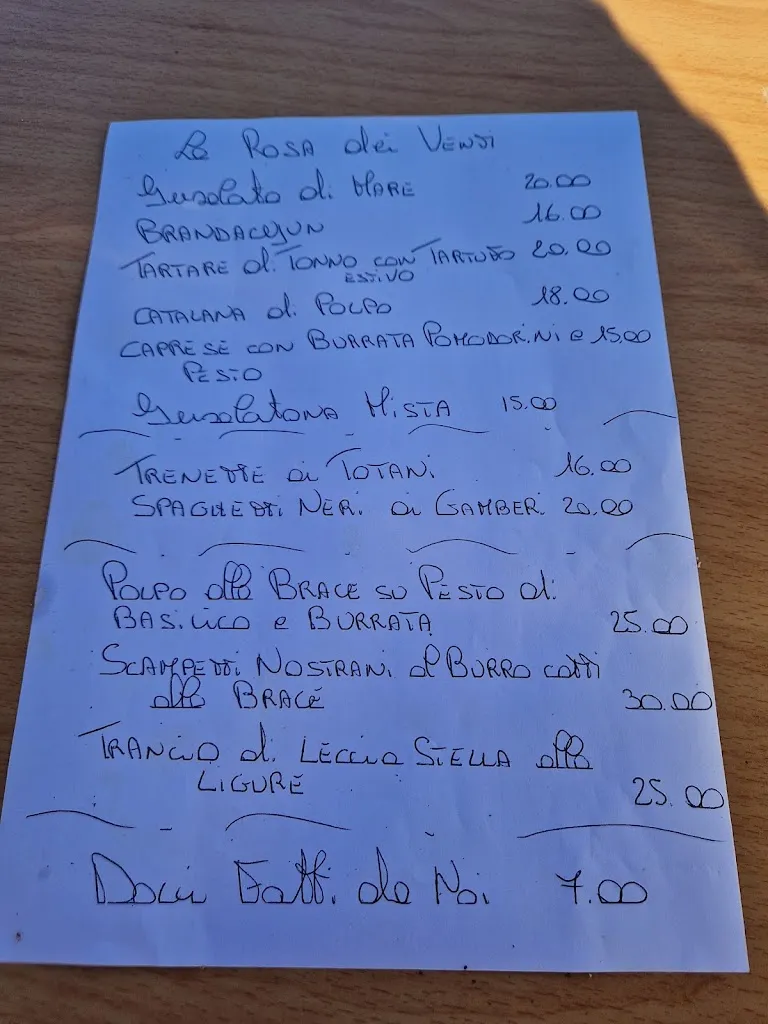 La Rosa dei Venti
Insalata di Mare 20.00
Brandacujun 16.00
Tartare di Tonno con Tartufo 20.00
estivo
Catalana di Polpo 18.00
Caprese con Burrata Pomodorini e 15.00
Pesto
Insalatona Mista 15.00
Trenette ai Totani 16.00
Spaghetti Neri ai Gamberi 20.00
Polpo alla Brace su Pesto di
Basilico e Burrata 25.00
Scampetti Nostrani al Burro cotti
alla Brace 30.00
Trancio di Leccia Stella alla
Ligure 25.00
Dolci Fatti da Noi 7.00